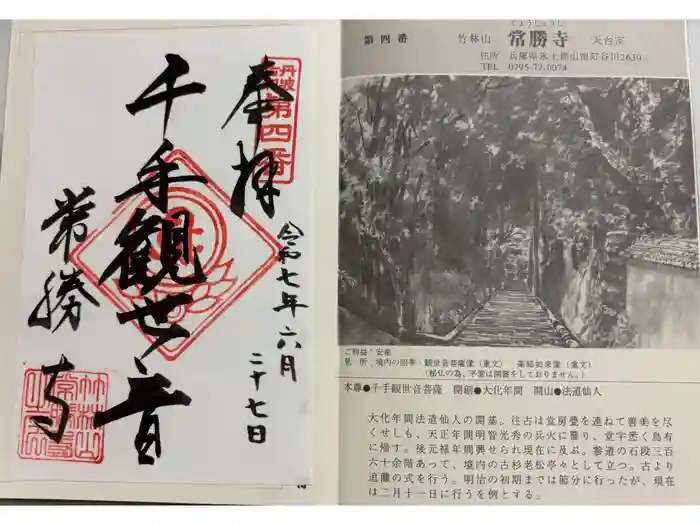 丹波
第四番
奉拝
令和七年六月
二十七日
千手観世音
常勝寺
じょうしょうじ
第四番 竹林山 常勝寺 天台宗
住所 兵庫県氷上郡山南町谷川2630
TEL 0795-77-0074
ご利益・安産
見 所・境内の四季・観世音菩薩像（重文） 薬師如来像（重文）
（秘仏の為、平常は開扉をしておりません。）
本尊●千手観世音菩薩 開創●大化年間 開山●法道仙人
大化年間法道仙人の開基。往古は堂房甍を連ねて善美を尽
くせしも、天正年間明智光秀の兵火に罹り、堂宇悉く烏有
に帰す。後元禄年間興せられ現在に及ぶ。参道の石段三百
六十余階あって、境内の古杉老松亭々として立つ。古より
追儺の式を行う。明治の初期までは節分に行ったが、現在
は二月十一日に行うを例とする。